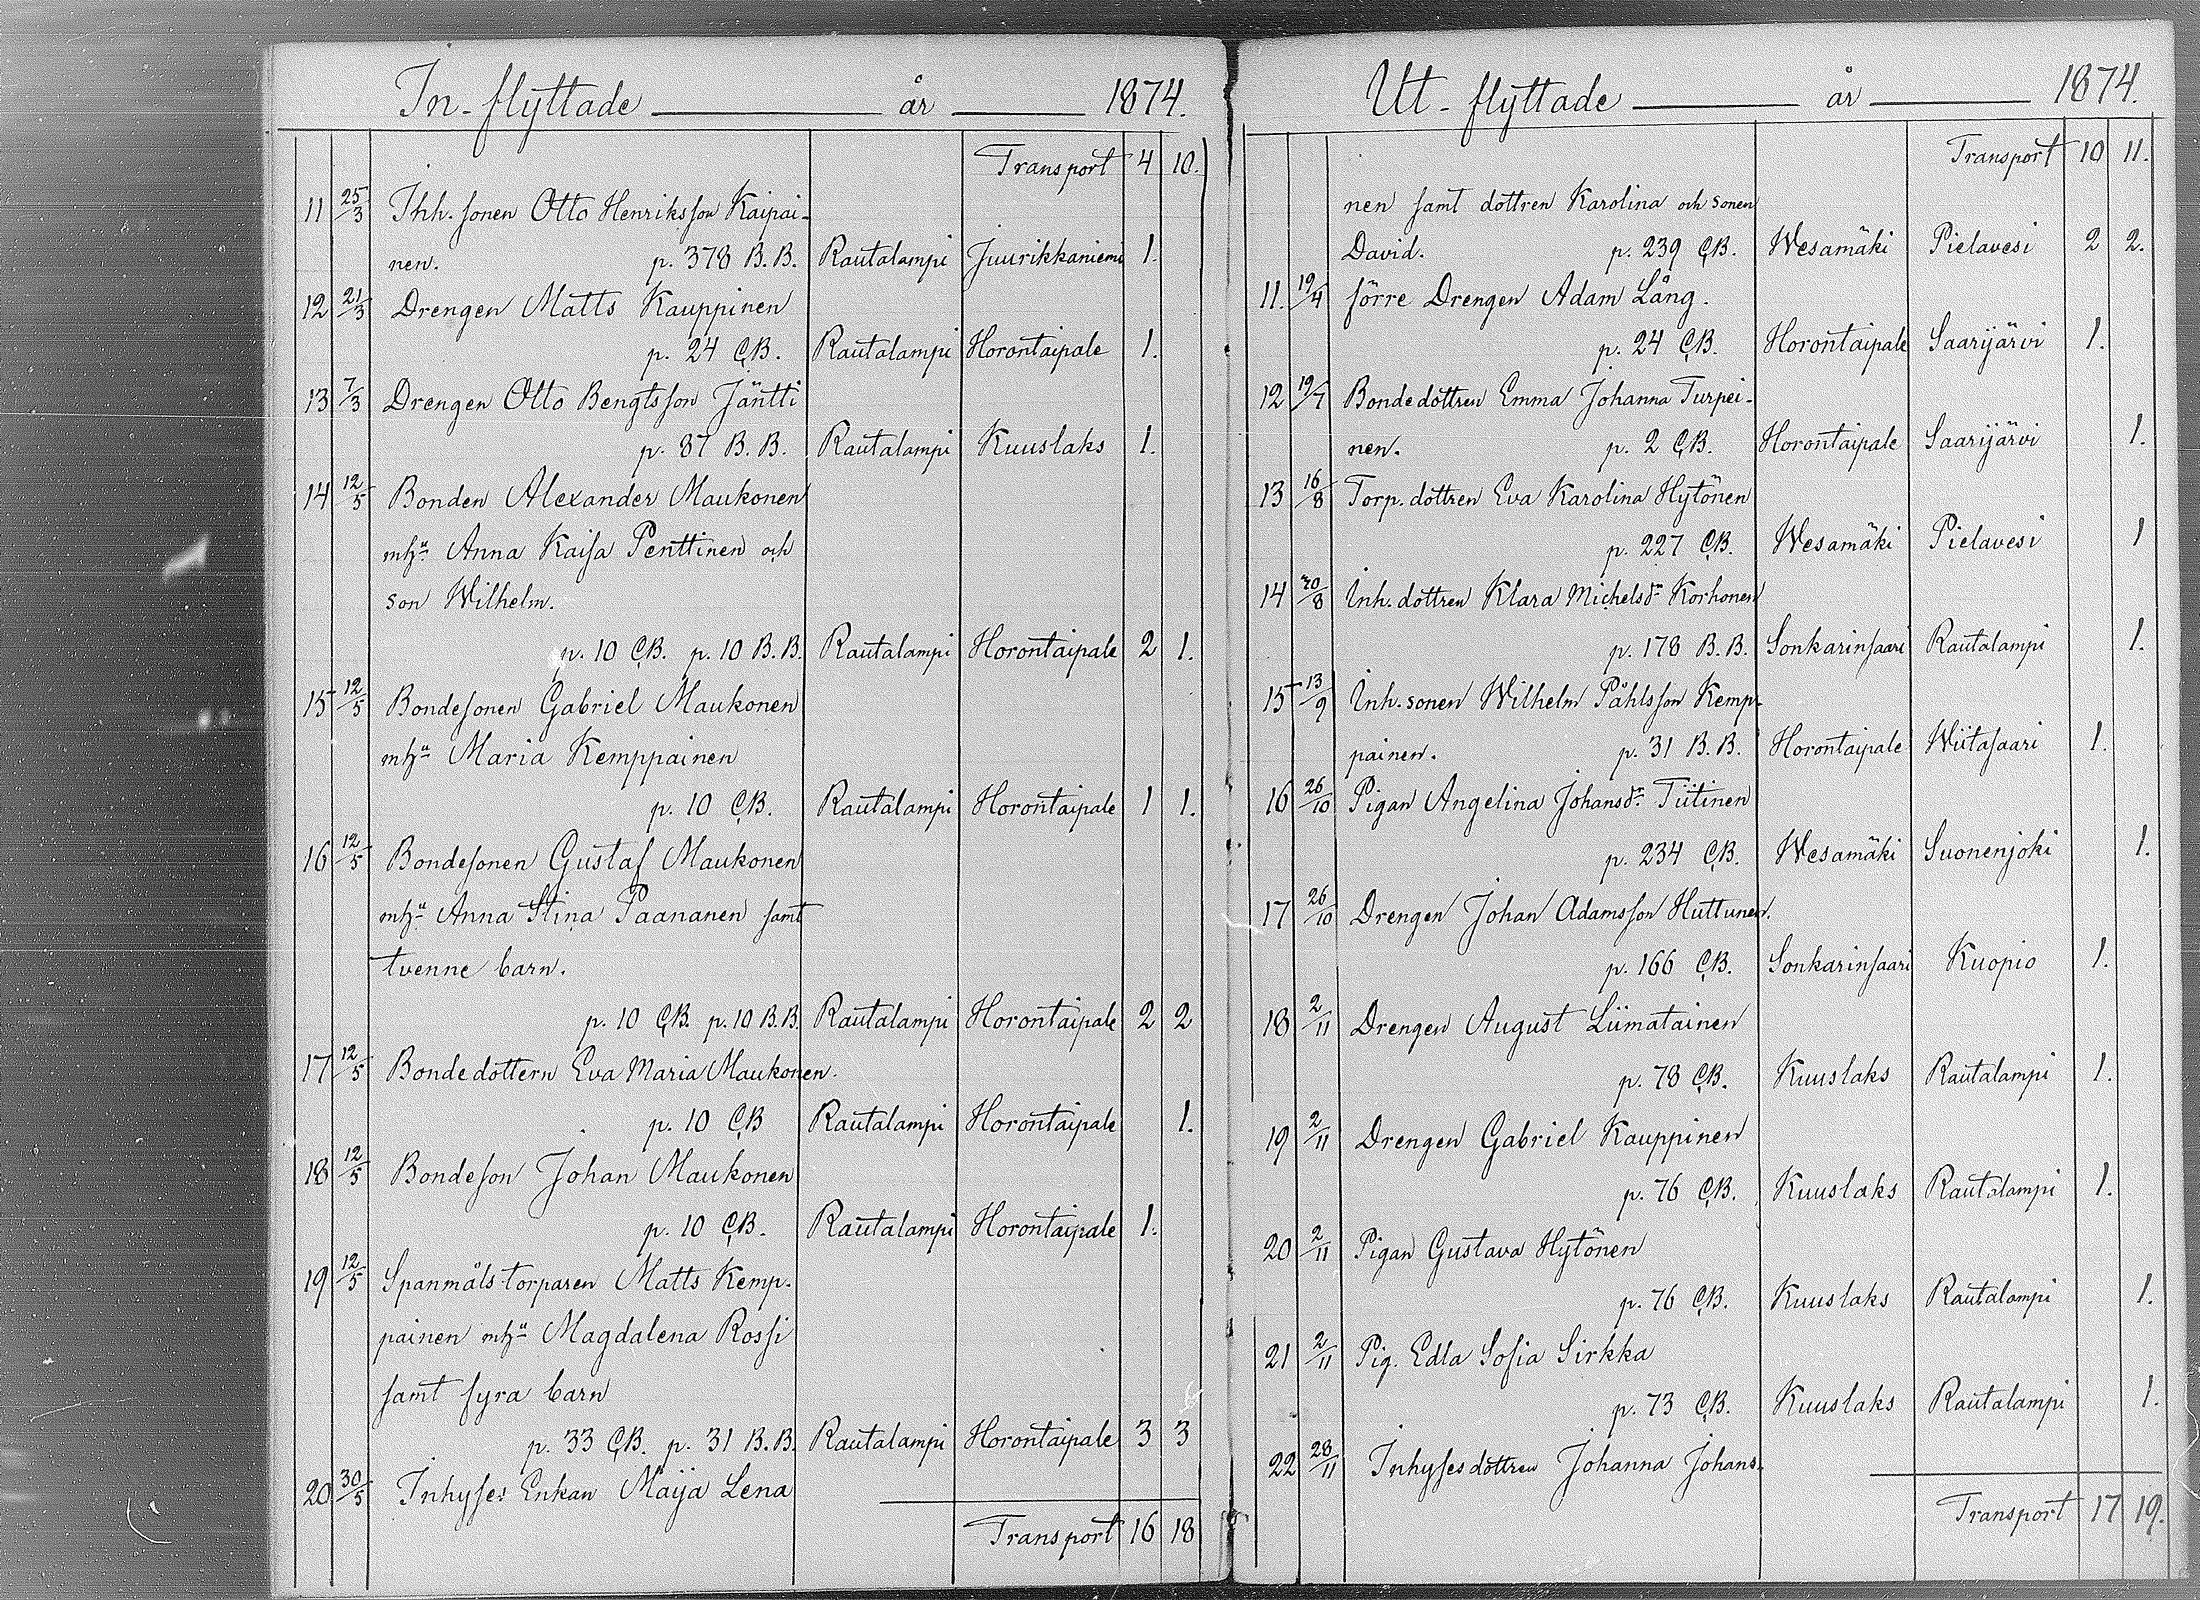 In-flyttade år 1874.
Transport 4 10.
11 25/3 Inh. sonen Otto Henriksson Kaipai-
nen. p. 378 B.B. Rautalampi Juurikkaniemi 1.
12 21/3 Drengen Matts Kauppinen
p. 24 C.B. Rautalampi Horontaipale 1.
13 7/3 Drengen Otto Bengtsson Jäntti
p. 87 B.B. Rautalampi Kuuslaks 1.
14 12/5 Bonden Alexander Maukonen
mh:u Anna Kaisa Penttinen och
son Wilhelm.
p. 10 C.B. p. 10 B.B. Rautalampi Horontaipale 2 1.
15 12/5 Bondesonen Gabriel Maukonen
mh:u Maria Kemppainen
p. 10 C.B. Rautalampi Horontaipale 1 1.
16 12/5 Bondesonen Gustaf Maukonen
mh:u Anna Stina Paananen samt
tvenne barn.
p. 10 C.B. p. 10 B.B. Rautalampi Horontaipale 2 2
17 12/5 Bondedottern Eva Maria Maukonen.
p. 10 C.B Rautalampi Horontaipale 1.
18 12/5 Bondeson Johan Maukonen
p. 10 C.B. Rautalampi Horontaipale 1.
19 12/5 Spanmåls torparen Matts Kemp-
painen mh:u Magdalena Rossi
samt fyra barn
p. 33 C.B. p. 31 B.B. Rautalampi Horontaipale 3 3
20 30/5 Inhyses Enkan Maija Lena
Transport 16 18
Ut-flyttade år 1874.
Transport 10 11.
nen samt dottren Karolina och sonen
David. p. 239 C.B. Wesamäki Pielavesi 2 2.
11. 19/4 förre Drengen Adam Lång.
p. 24 C.B. Horontaipale Saarijärvi 1.
12 19/7 Bondedottren Emma Johanna Turpei-
nen. p. 2 C.B. Horontaipale Saarijärvi 1.
13 16/8 Torp. dottren Eva Karolina Hytönen
p. 227 C.B. Wesamäki Pielavesi 1
14 30/8 Inh. dottren Klara Michelsdr Korhonen
p. 178 B.B. Sonkarinsaari Rautalampi 1.
15 13/9 Inh. sonen Wilhelm Påhlsson Kemp-
painen. p. 31 B.B. Horontaipale Wiitasaari 1.
16 26/10 Pigan Angelina Johansdr Tiitinen
p. 234 C.B. Wesamäki Suonenjoki 1.
17 26/10 Drengen Johan Adamsson Huttunen.
p. 166 C.B. Sonkarinsaari Kuopio 1.
18 2/11 Drengen August Liimatainen
p. 78 C.B. Kuuslaks Rautalampi 1.
19 2/11 Drengen Gabriel Kauppinen
p. 76 C.B. Kuuslaks Rautalampi 1.
20 2/11 Pigan Gustava Hytönen
p. 76 C.B. Kuuslaks Rautalampi 1.
21 2/11 Pig. Edla Sofia Sirkka
p. 73 C.B. Kuuslaks Rautalampi 1.
22 28/11 Inhyses dottren Johanna Johans-
Transport 17 19.